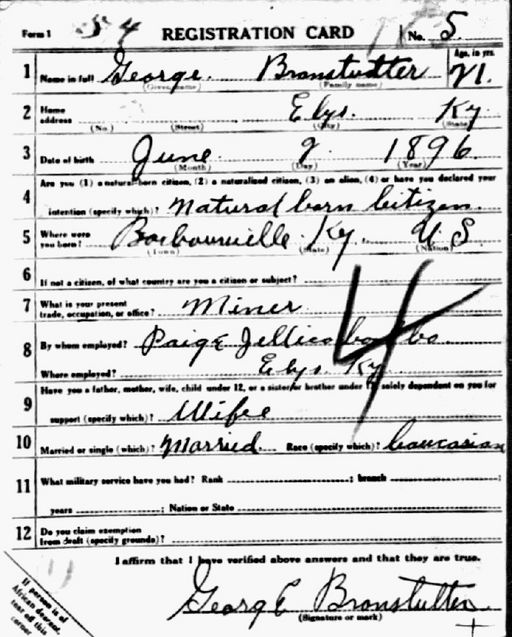 Form 1 54 REGISTRATION CARD No. 5
Age, in yrs.
1 Name in full George Branstudtter 21.
(Given name) (Family name)
2 Home address Elys. Ky
(No.) (Street) (City) (State)
3 Date of birth June 9 1896
(Month) (Day) (Year)
4 Are you (1) a natural-born citizen, (2) a naturalized citizen, (3) an alien, (4) or have you declared your
intention (specify which)? Natural born Citizen
5 Where were you born? Barbourville Ky. U.S.
(Town) (State) (Nation)
6 If not a citizen, of what country are you a citizen or subject?
7 What is your present trade, occupation, or office? Miner
8 By whom employed? Paige Jellico
Where employed? Elys. Ky
4
9 Have you a father, mother, wife, child under 12, or a sister or brother under solely dependent on you for
support (specify which)? Wife
10 Married or single (which)? Married Race (specify which)? Caucasian
11 What military service have you had? Rank ; branch ;
years ; Nation or State
12 Do you claim exemption from draft (specify grounds)?
I affirm that I have verified above answers and that they are true.
George Branstutter
(Signature or mark)
If person is of
African descent,
tear off this
corner